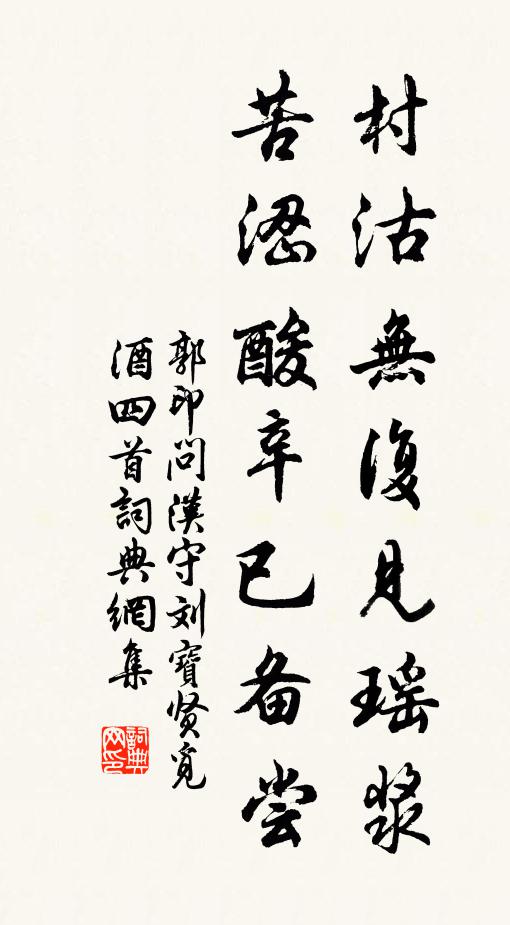 村沽無復見瑶漿
苦澀酸辛已备尝
郭印问漢守刘寶贤覓
酒四首詞典網集
詞典网印